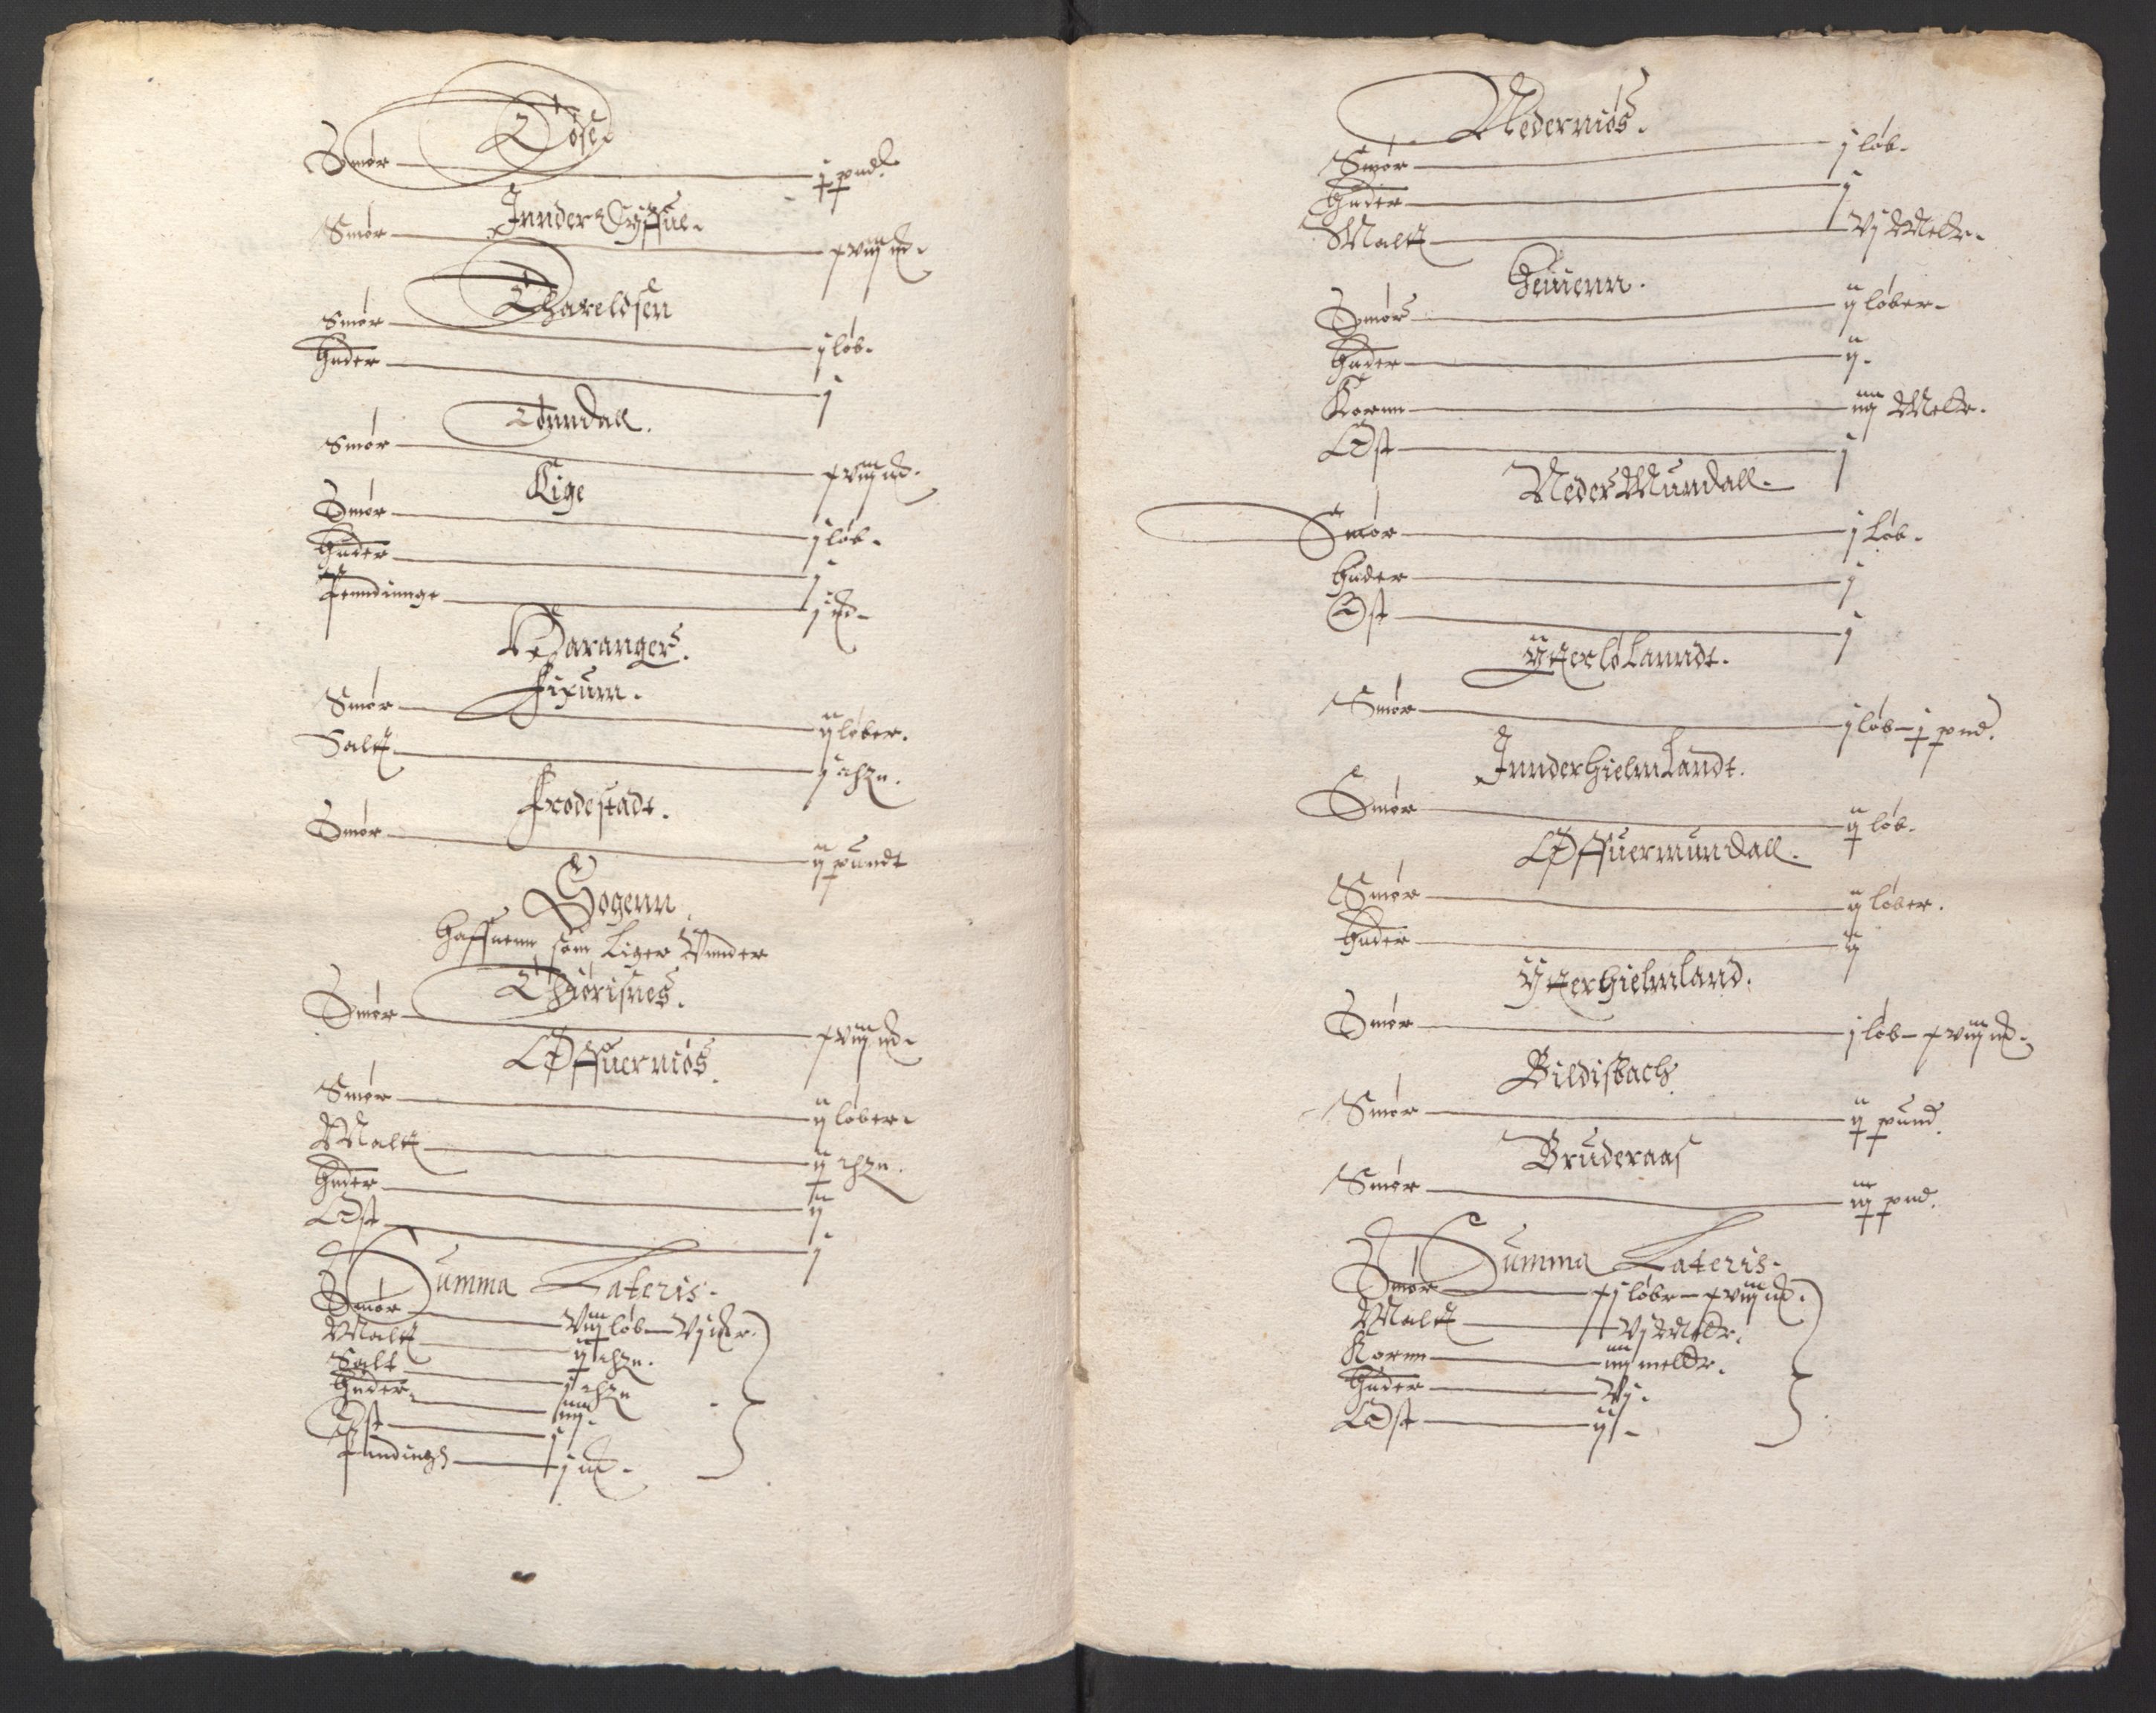 Tøse.
Smør — j pnd.
Innder Dyffuel.
Smør — xviij m̃.
Thareldsen
Smør — j løb.
Huder — j
Tønndall.
Smør — xviij m̃.
Lige
Smør — j løb.
Huder — j
Penndinnge — j m̃.
Haranger.
Fixum.
Smør — ij løber.
Salt — j
Frodestadt.
Smør — ij pundt
Sogenn.
Haffnenn som Liger Vnnder
Thiørisnes.
Smør — xviij m̃.
Øffuermøs.
Smør — ij løber.
Malt — ij
Huder — ij
Ost — j
Summa Lateris.
Smør — viij løb — vj m̃r.
Malt — ij
Salt — j
Huder — iiij.
Ost — j
Pendingh — j m̃.
Nedermøs.
Smør — j løb.
Huder — j
Malt — vj Meler.
Feiienn.
Smør — ij løber.
Huder — ij.
Kornn — iiij Meler.
Ost — j
Neder Mundall.
Smør — j Løb.
Huder — j
Ost — j
Ytterlø Lanndt.
Smør — j løb — j pnd.
Innderhielm Landt.
Smør — ij løb.
Øffuermundall.
Smør — ij løber.
Huder — ij
Ytterhielmland.
Smør — j løb — xviij m̃.
Bildisbach
Smør — ij pund.
Bruderaas
Smør — iij pnd.
Summa Lateris.
Smør — xj løbr — xviij m̃.
Malt — vj Meldr.
Kornn — iiij meldr.
Huder — vj.
Ost — ij.